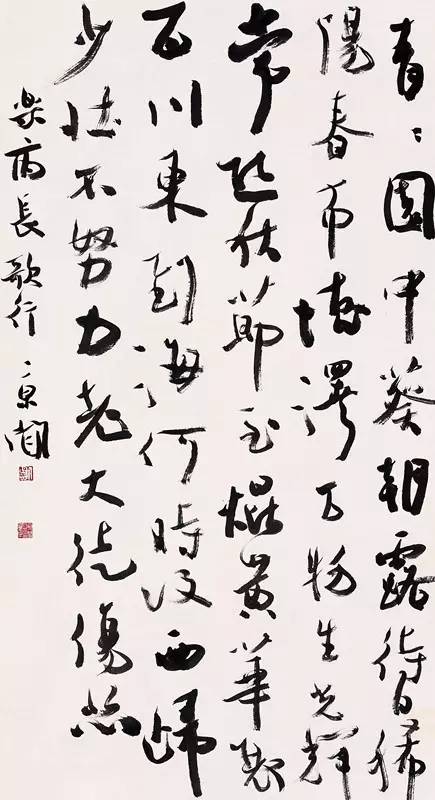 青〻園中葵朝露待日晞
陽春布德澤万物生光輝
常恐秋節至焜黄華衰
百川東到海何時復西歸
少壮不努力老大徒傷悲
樂府長歌行